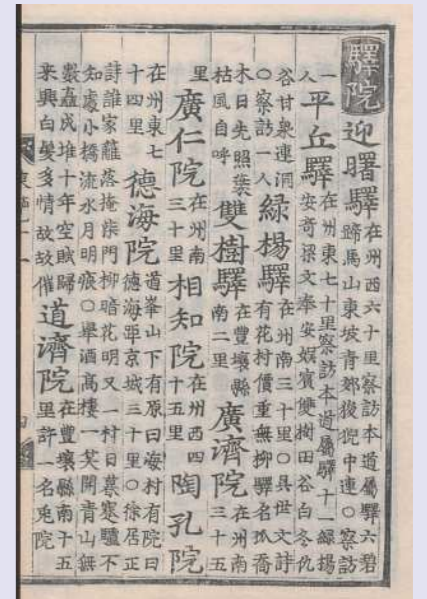 驛院 迎曙驛 在州西六十里察訪本道屬驛六碧蹄馬山東坡青郊狻猊中連○察訪
一人 平丘驛 在州東七十里察訪本道屬驛十一綠楊安奇梁文奉安娛賓雙樹田谷白冬仇
谷甘泉連洞○察訪一人 綠楊驛 在州南三十里○具世文詩有花村價重無柳驛名孤喬
木日先照叢枯風自呼 雙樹驛 在豐壤縣南二里 廣濟院 在州南三十五
里 廣仁院 在州南三十里 相知院 在州西四十五里 陶孔院
在州東七十四里 德海院 道峯山下有原曰海村有院曰德海距京城三十里○徐居正
詩誰家籬落掩柴門柳暗花明又一村日暮蹇驢不知處小橋流水月明痕○擧酒高樓一笑開青山無
叢矗成堆十年空賦歸來興白髮多情故故催 道濟院 在豐壤縣南十五里許一名兎院